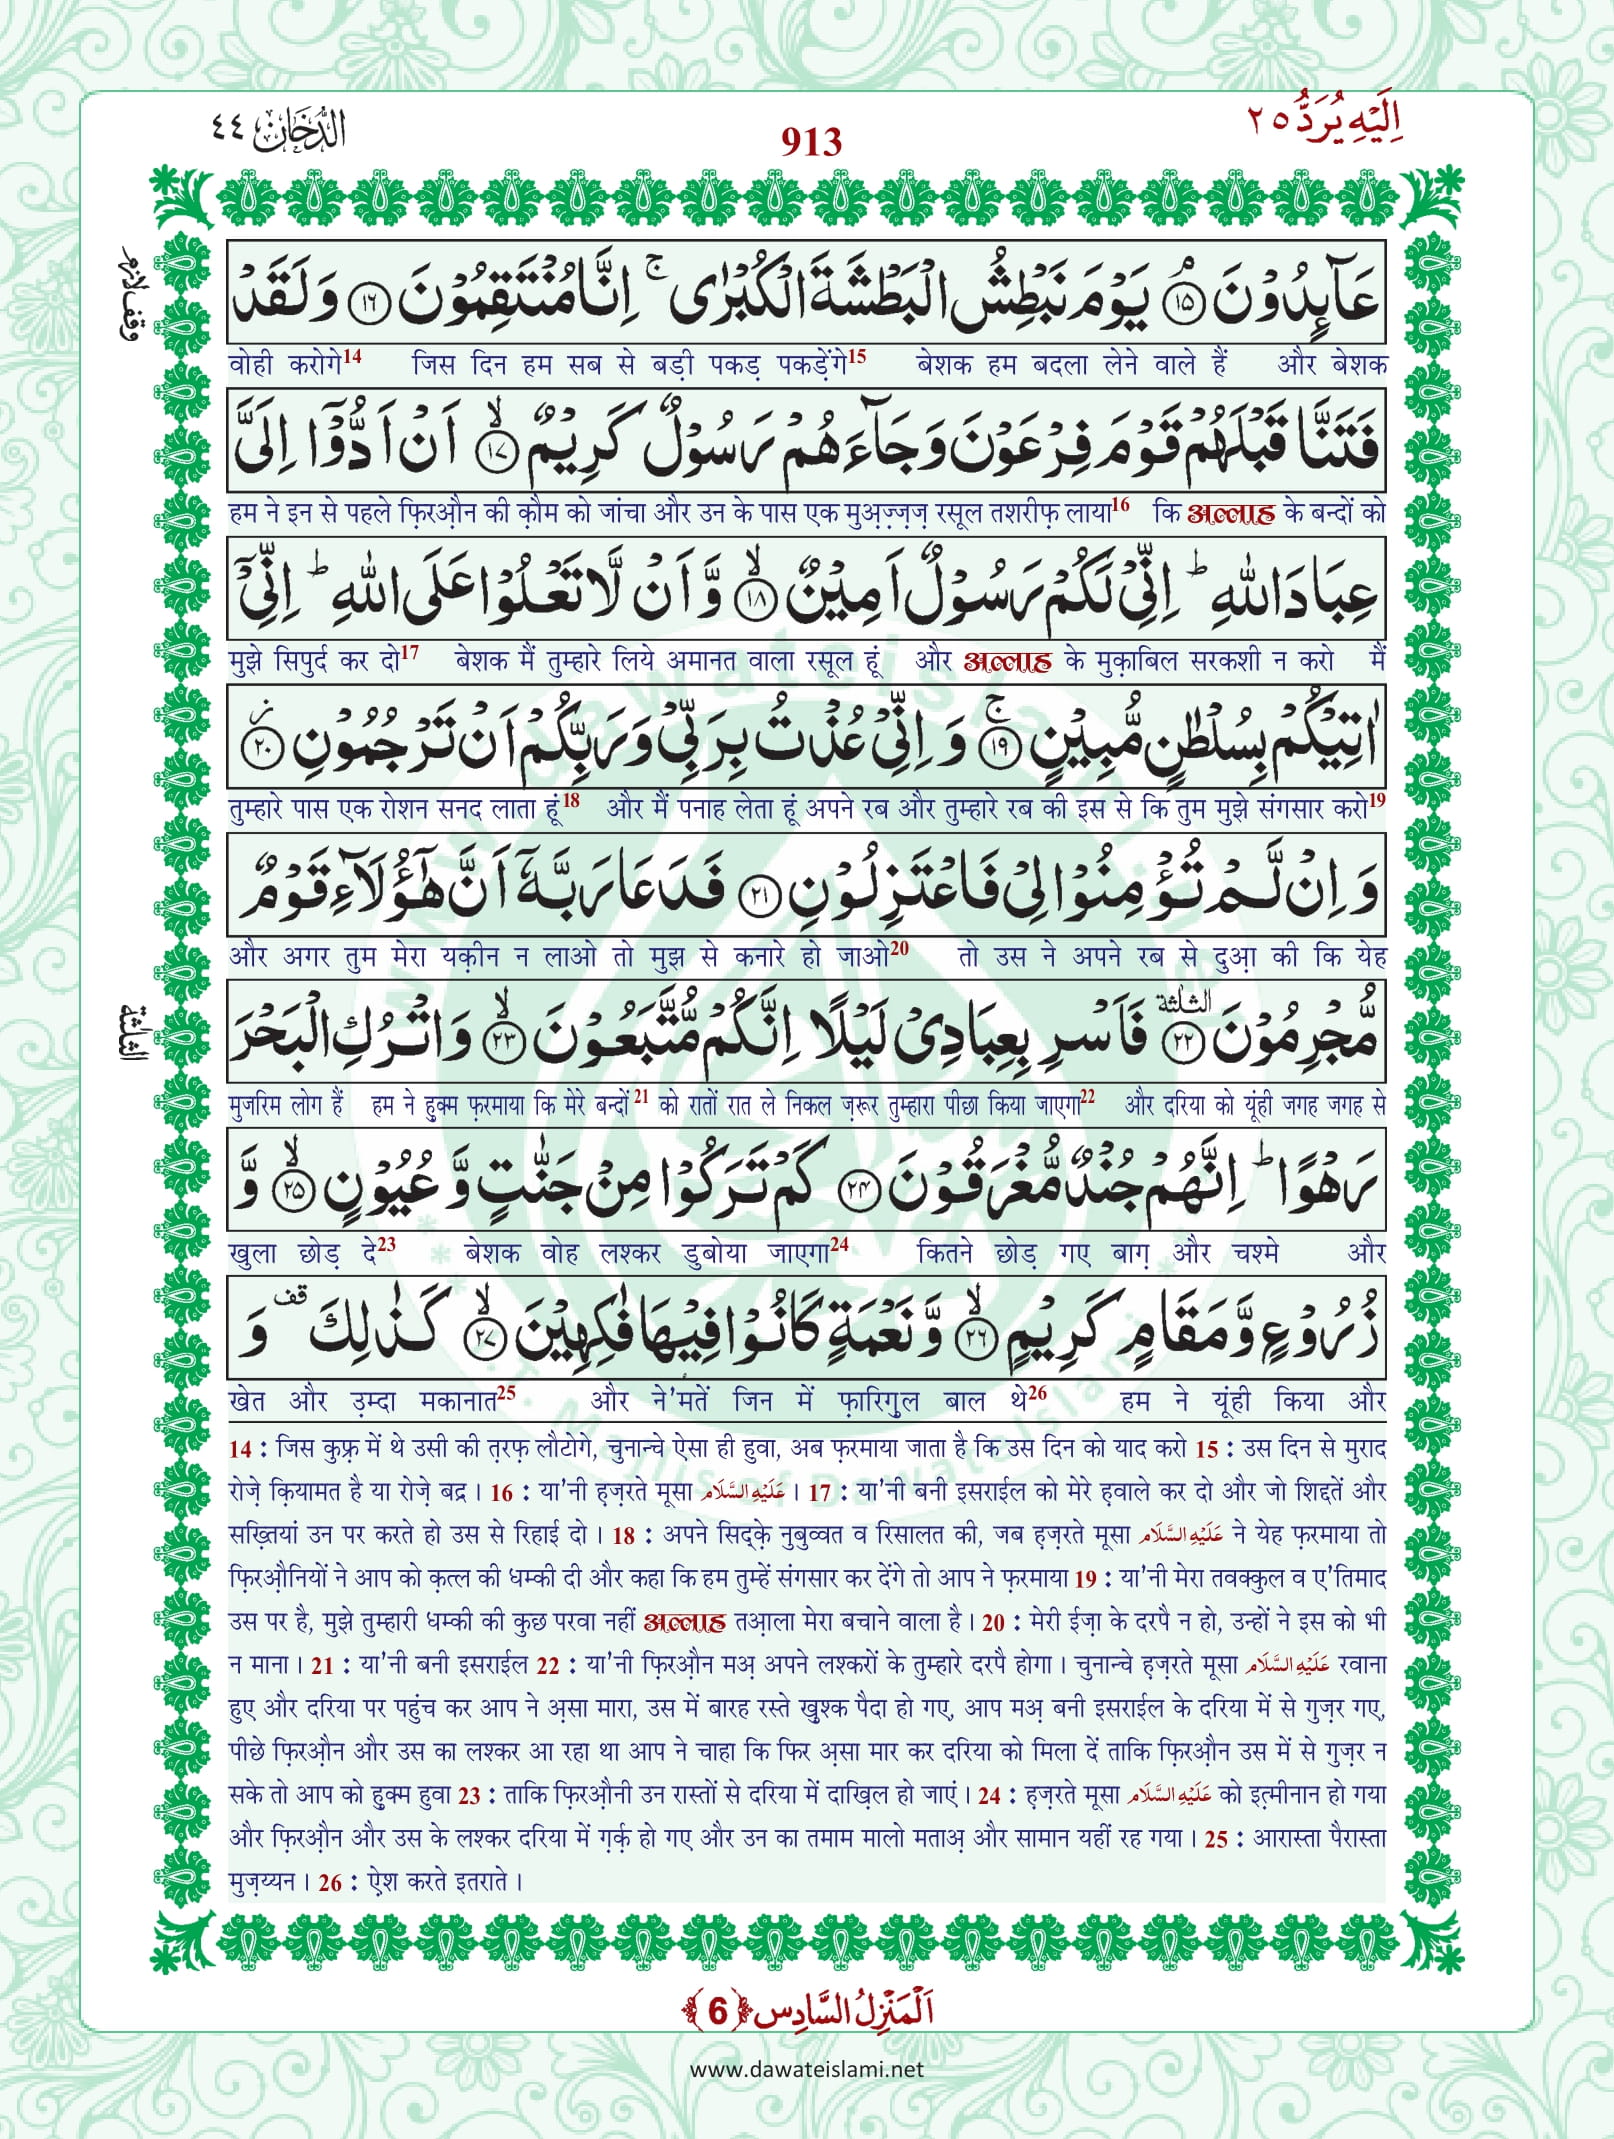 اِلَیْهِ یُرَدُّ ٢٥
913
الدُّخَان ٤٤
عَآىِٕدُوْنَ ۘ﴿۱۵﴾ یَوْمَ نَبْطِشُ الْبَطْشَةَ الْكُبْرٰى ۚ اِنَّا مُنْتَقِمُوْنَ ﴿۱۶﴾ وَ لَقَدْ
وقف لازم
वोही करोगे14 जिस दिन हम सब से बड़ी पकड़ पकड़ेंगे15 बेशक हम बदला लेने वाले हैं और बेशक
فَتَنَّا قَبْلَهُمْ قَوْمَ فِرْعَوْنَ وَ جَآءَهُمْ رَسُوْلٌ كَرِیْمٌ ۙ﴿۱۷﴾ اَنْ اَدُّوْۤا اِلَیَّ
हम ने इन से पहले फ़िरऔ़न की क़ौम को जांचा और उन के पास एक मुअ़ज़्ज़ज़ रसूल तशरीफ़ लाया16 कि अल्लाह के बन्दों को
عِبَادَ اللّٰهِ ؕ اِنِّیْ لَكُمْ رَسُوْلٌ اَمِیْنٌ ۙ﴿۱۸﴾ وَّ اَنْ لَّا تَعْلُوْا عَلَى اللّٰهِ ؕ اِنِّیْۤ
मुझे सिपुर्द कर दो17 बेशक मैं तुम्हारे लिये अमानत वाला रसूल हूं और अल्लाह के मुक़ाबिल सरकशी न करो मैं
اٰتِیْكُمْ بِسُلْطٰنٍ مُّبِیْنٍ ۚ﴿۱۹﴾ وَ اِنِّیْ عُذْتُ بِرَبِّیْ وَ رَبِّكُمْ اَنْ تَرْجُمُوْنِ ؗ﴿۲۰﴾
तुम्हारे पास एक रोशन सनद लाता हूं18 और मैं पनाह लेता हूं अपने रब और तुम्हारे रब की इस से कि तुम मुझे संगसार करो19
وَ اِنْ لَّمْ تُؤْمِنُوْا لِیْ فَاعْتَزِلُوْنِ ﴿۲۱﴾ فَدَعَا رَبَّهٗۤ اَنَّ هٰۤؤُلَآءِ قَوْمٌ
और अगर तुम मेरा यक़ीन न लाओ तो मुझ से कनारे हो जाओ20 तो उस ने अपने रब से दुआ़ की कि येह
مُّجْرِمُوْنَ ﴿۲۲﴾ الثلٰثة فَاَسْرِ بِعِبَادِیْ لَیْلًا اِنَّكُمْ مُّتَّبَعُوْنَ ۙ﴿۲۳﴾ وَ اتْرُكِ الْبَحْرَ
الثلٰثة
मुजरिम लोग हैं हम ने हुक्म फ़रमाया कि मेरे बन्दों21 को रातों रात ले निकल ज़रूर तुम्हारा पीछा किया जाएगा22 और दरिया को यूंही जगह जगह से
رَهْوًا ؕ اِنَّهُمْ جُنْدٌ مُّغْرَقُوْنَ ﴿۲۴﴾ كَمْ تَرَكُوْا مِنْ جَنّٰتٍ وَّ عُیُوْنٍ ۙ﴿۲۵﴾ وَّ
खुला छोड़ दे23 बेशक वोह लश्कर डुबोया जाएगा24 कितने छोड़ गए बाग़ और चश्मे और
زُرُوْعٍ وَّ مَقَامٍ كَرِیْمٍ ۙ﴿۲۶﴾ وَّ نَعْمَةٍ كَانُوْا فِیْهَا فٰكِهِیْنَ ۙ﴿۲۷﴾ كَذٰلِكَ ۫ قف وَ
खेत और उ़म्दा मकानात25 और ने'मतें जिन में फ़ारिगुल बाल थे26 हम ने यूंही किया और
14 : जिस कुफ़्र में थे उसी की त़रफ़ लौटोगे, चुनान्चे ऐसा ही हुवा, अब फ़रमाया जाता है कि उस दिन को याद करो 15 : उस दिन से मुराद
रोज़े क़ियामत है या रोज़े बद्र। 16 : या'नी ह़ज़रते मूसा عَلَیْهِ السَّلَام। 17 : या'नी बनी इसराईल को मेरे ह़वाले कर दो और जो शिद्दतें और
सख़्तियां उन पर करते हो उस से रिहाई दो। 18 : अपने सिद्क़े नुबुव्वत व रिसालत की, जब ह़ज़रते मूसा عَلَیْهِ السَّلَام ने येह फ़रमाया तो
फ़िरऔ़नियों ने आप को क़त्ल की धम्की दी और कहा कि हम तुम्हें संगसार कर देंगे तो आप ने फ़रमाया 19 : या'नी मेरा तवक्कुल व ए'तिमाद
उस पर है, मुझे तुम्हारी धम्की की कुछ परवा नहीं अल्लाह तआ़ला मेरा बचाने वाला है। 20 : मेरी ईज़ा के दरपै न हो, उन्हों ने इस को भी
न माना। 21 : या'नी बनी इसराईल 22 : या'नी फ़िरऔ़न मअ़ अपने लश्करों के तुम्हारे दरपै होगा। चुनान्चे ह़ज़रते मूसा عَلَیْهِ السَّلَام रवाना
हुए और दरिया पर पहुंच कर आप ने अ़सा मारा, उस में बारह रस्ते खुश्क पैदा हो गए, आप मअ़ बनी इसराईल के दरिया में से गुज़र गए,
पीछे फ़िरऔ़न और उस का लश्कर आ रहा था आप ने चाहा कि फिर अ़सा मार कर दरिया को मिला दें ताकि फ़िरऔ़न उस में से गुज़र न
सके तो आप को हुक्म हुवा 23 : ताकि फ़िरऔ़नी उन रास्तों से दरिया में दाख़िल हो जाएं। 24 : ह़ज़रते मूसा عَلَیْهِ السَّلَام को इत़्मीनान हो गया
और फ़िरऔ़न और उस के लश्कर दरिया में ग़र्क़ हो गए और उन का तमाम मालो मताअ़ और सामान यहीं रह गया। 25 : आरास्ता पैरास्ता
मुज़य्यन। 26 : ऐ़श करते इतराते।
اَلْمَنْزِلُ السَّادِس ﴿6﴾
www.dawateislami.net